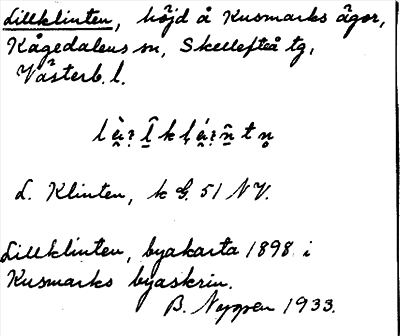 Lillklinten, höjd å Kusmarks ägor,
Kågedalens sn, Skellefteå tg,
Västerb. l.
L. Klinten, k G. 51 NV.
Lillklinten, byakarta 1898 i
Kusmarks byaskrin.
B. 1933.